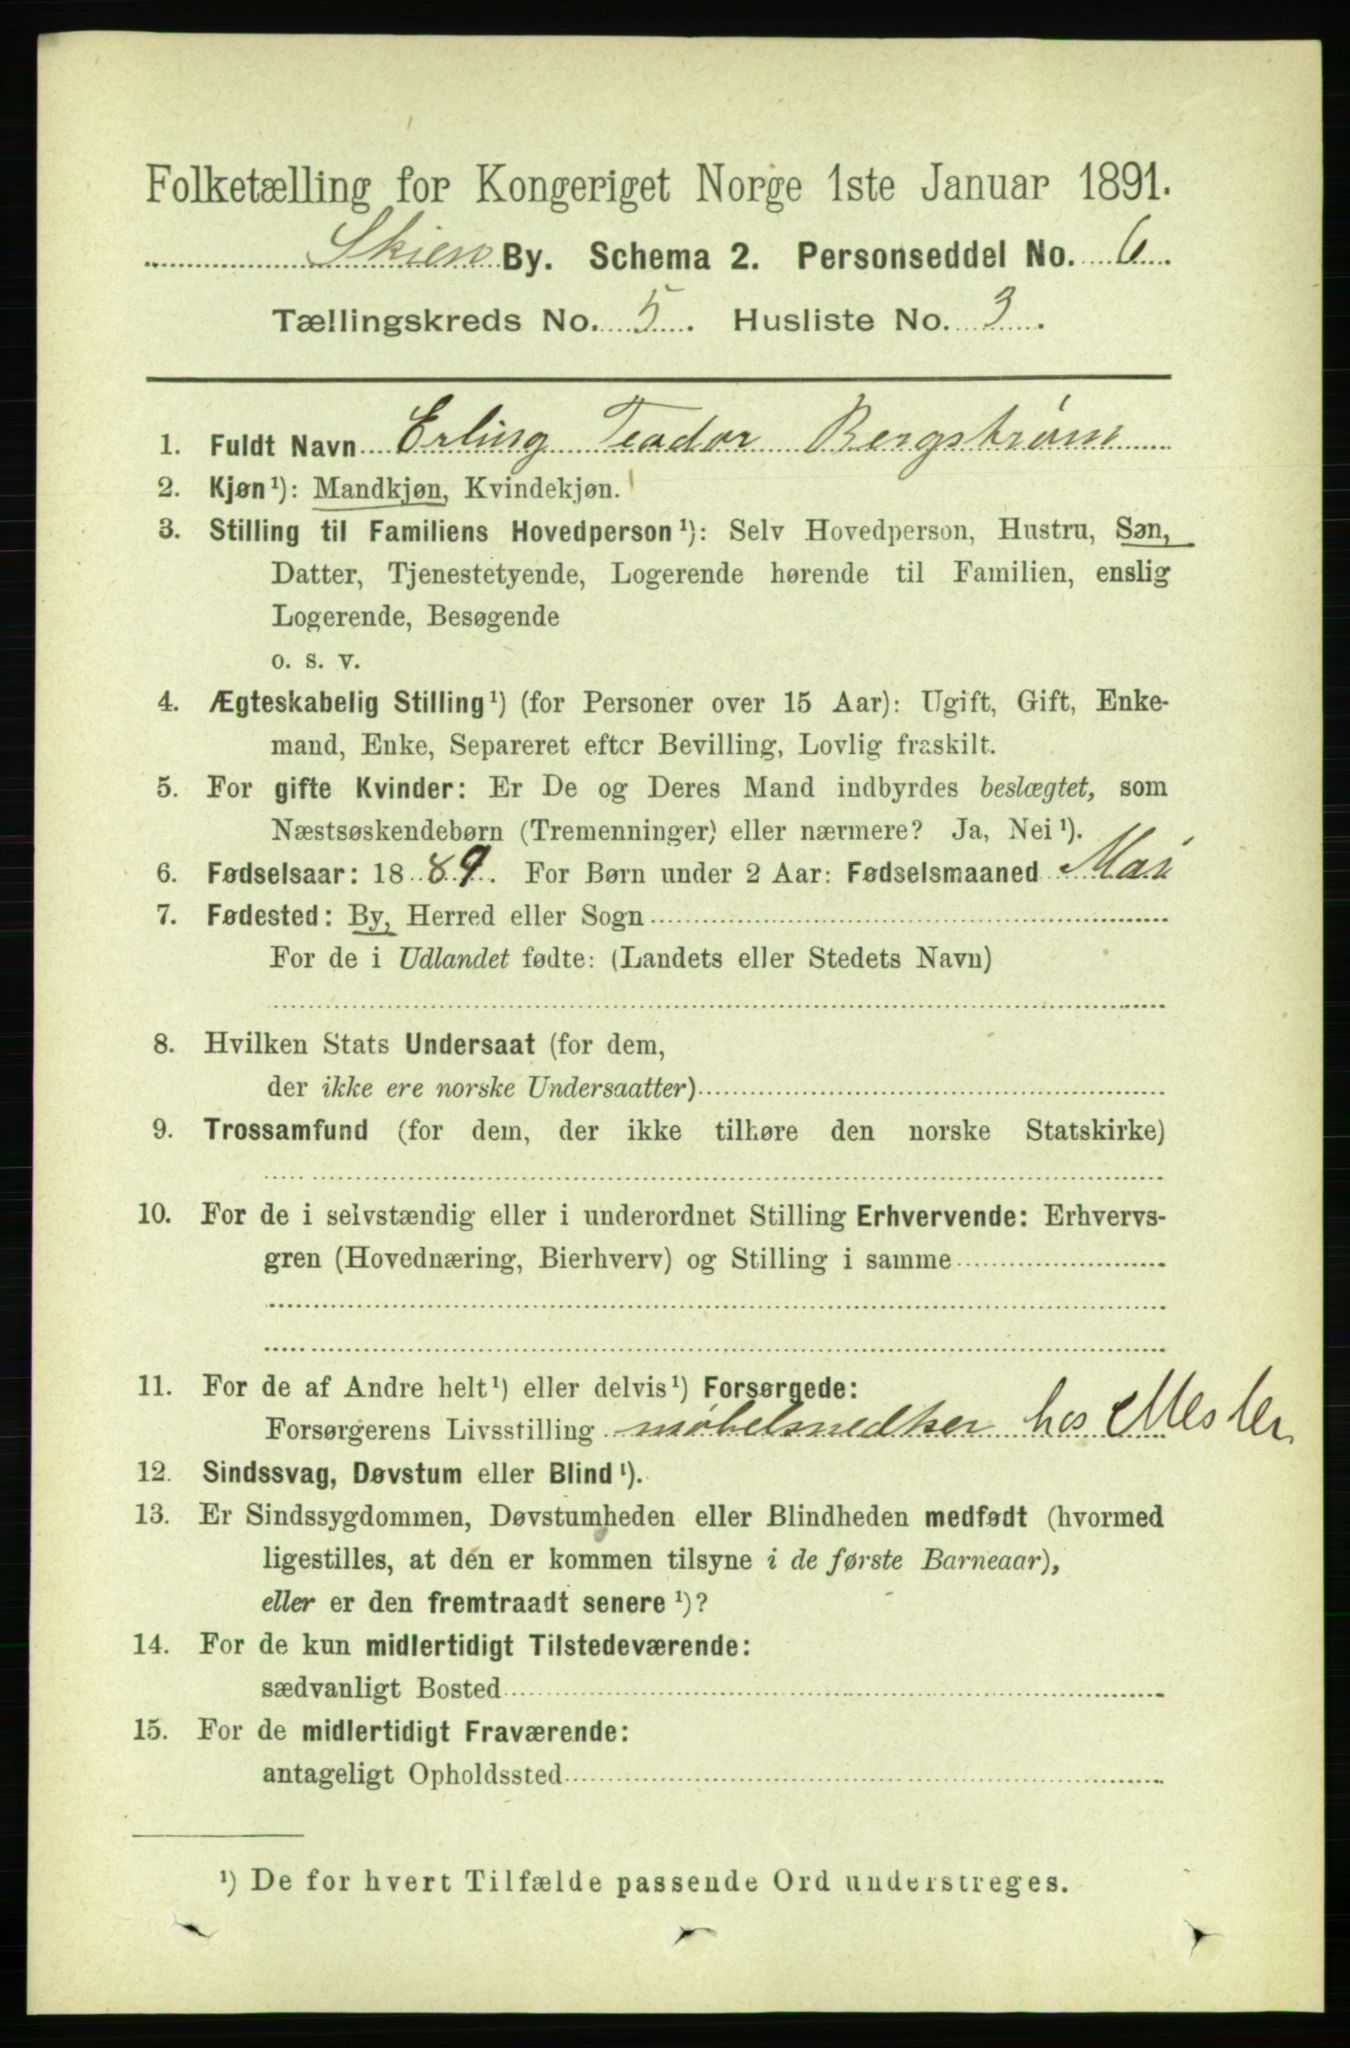 Folketælling for Kongeriget Norge 1ste Januar 1891.
Skien By. Schema 2. Personseddel No. 6.
Tællingskreds No. 5. Husliste No. 3.
1. Fuldt Navn Erling Teador Bergstrøm
2. Kjøn¹): Mandkjøn, Kvindekjøn.
3. Stilling til Familiens Hovedperson¹): Selv Hovedperson, Hustru, Søn,
Datter, Tjenestetyende, Logerende hørende til Familien, enslig
Logerende, Besøgende
o. s. v.
4. Ægteskabelig Stilling¹) (for Personer over 15 Aar): Ugift, Gift, Enke-
mand, Enke, Separeret efter Bevilling, Lovlig fraskilt.
5. For gifte Kvinder: Er De og Deres Mand indbyrdes beslægtet, som
Næstsøskendebørn (Tremenninger) eller nærmere? Ja, Nei¹).
6. Fødselsaar: 1889. For Børn under 2 Aar: Fødselsmaaned Mai
7. Fødested: By, Herred eller Sogn
For de i Udlandet fødte: (Landets eller Stedets Navn)
8. Hvilken Stats Undersaat (for dem,
der ikke ere norske Undersaatter)
9. Trossamfund (for dem, der ikke tilhøre den norske Statskirke)
10. For de i selvstændig eller i underordnet Stilling Erhvervende: Erhvervs-
gren (Hovednæring, Bierhverv) og Stilling i samme
11. For de af Andre helt¹) eller delvis¹) Forsørgede:
Forsørgerens Livsstilling møbelsnedker hos Mester
12. Sindssvag, Døvstum eller Blind¹).
13. Er Sindssygdommen, Døvstumheden eller Blindheden medfødt (hvormed
ligestilles, at den er kommen tilsyne i de første Barneaar),
eller er den fremtraadt senere¹)?
14. For de kun midlertidigt Tilstedeværende:
sædvanligt Bosted
15. For de midlertidigt Fraværende:
antageligt Opholdssted
¹) De for hvert Tilfælde passende Ord understreges.